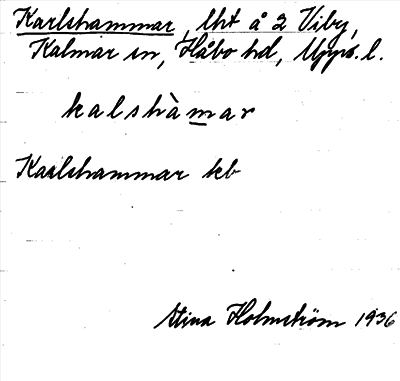 Karlshammar, lht å 2 Viby,
Kalmar sn, Håbo hd, Upps. l.
kalshàmar
Karlshammar kb
Stina Holmström 1936